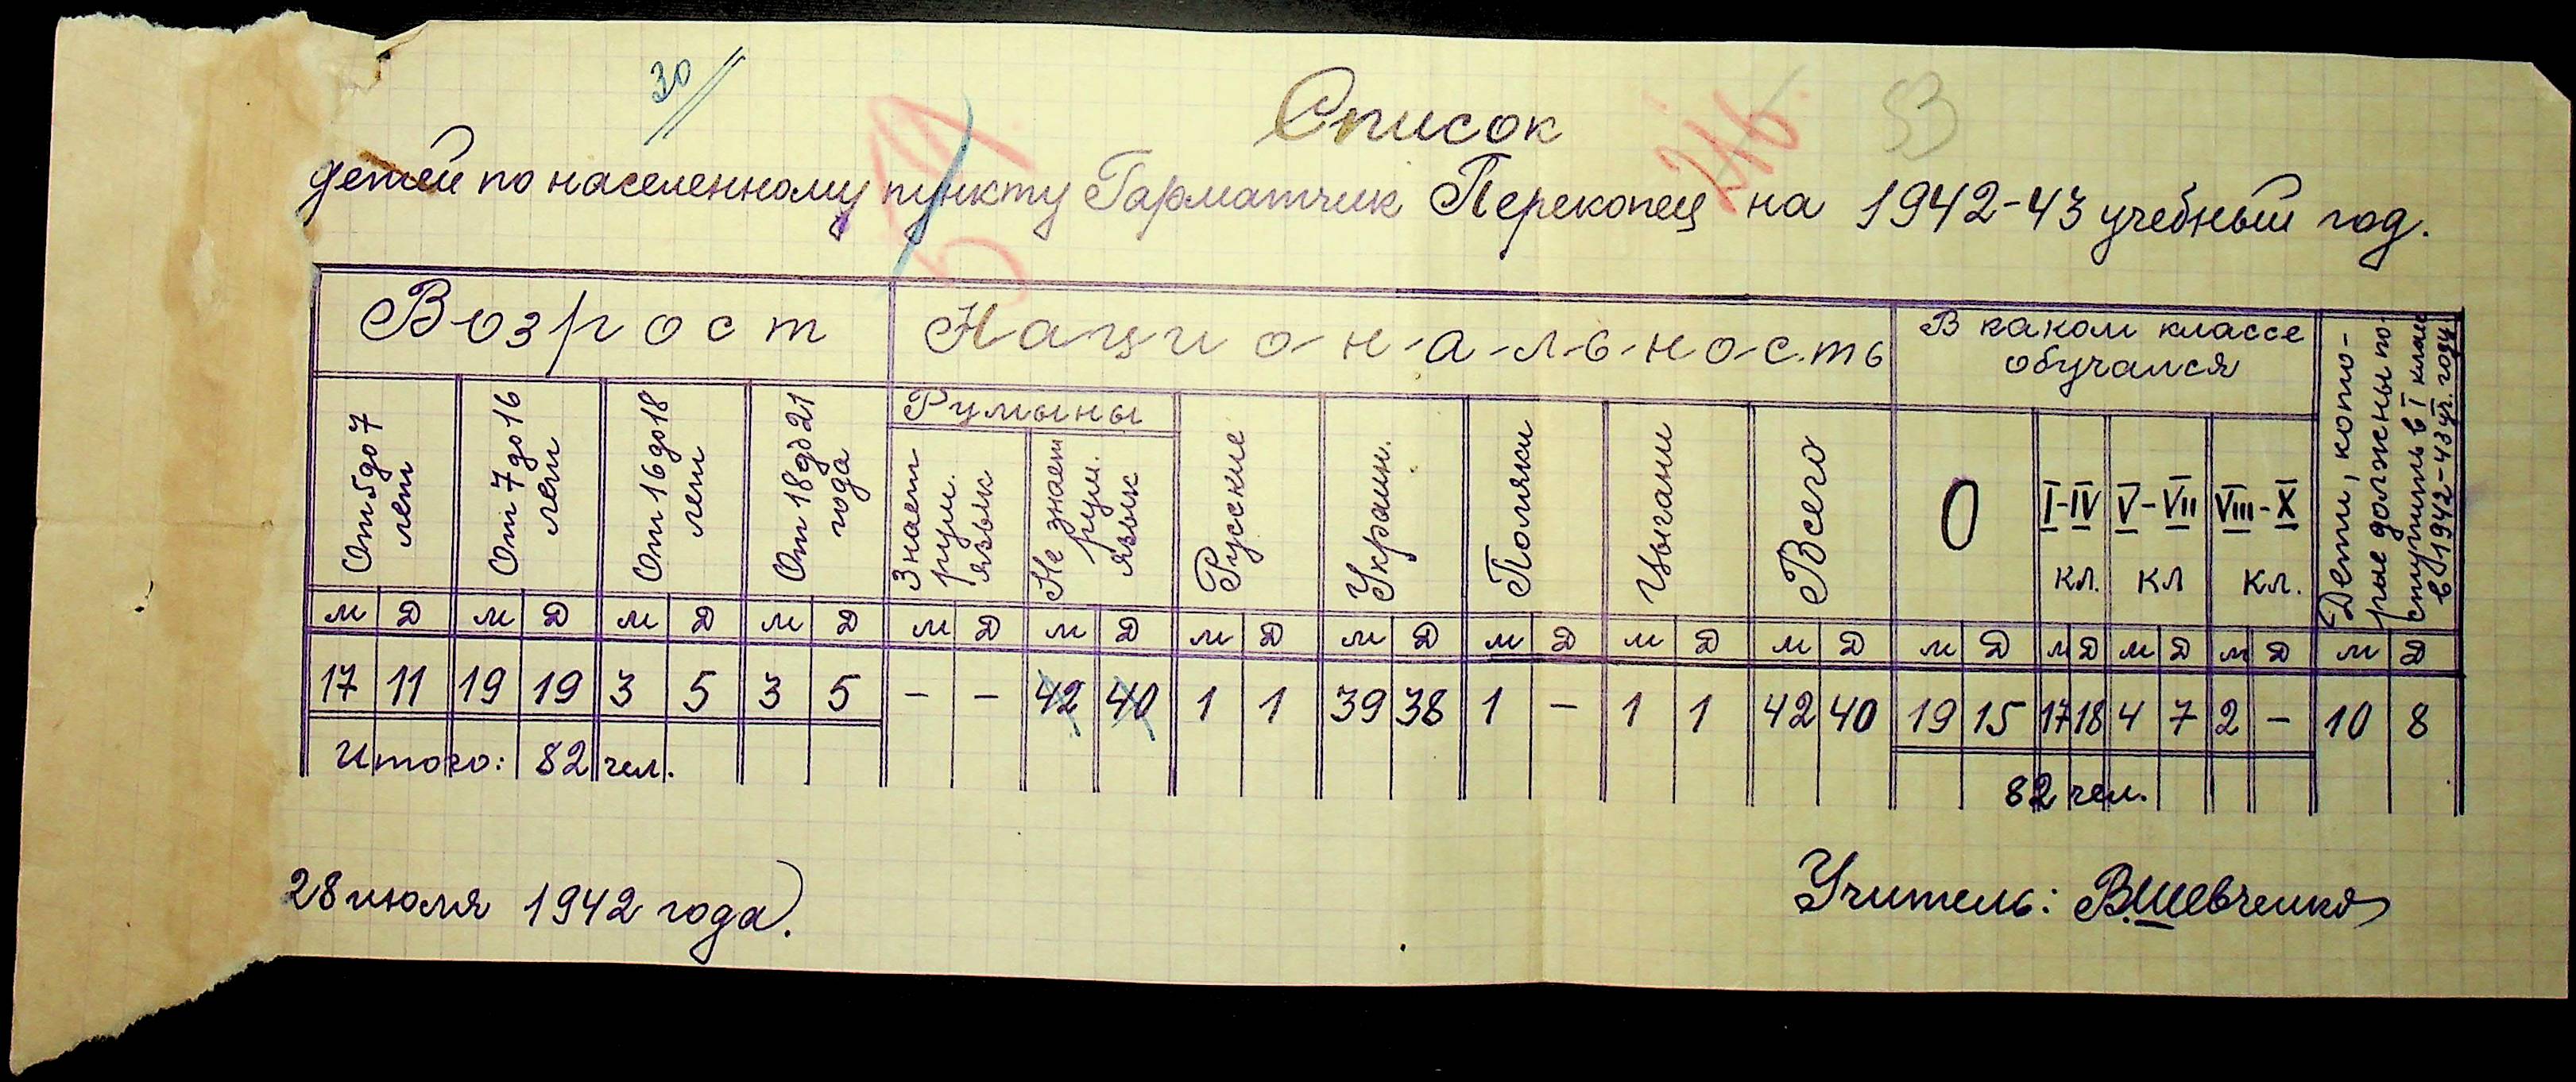 30
53
Список
детей по населенному пункту Гарматчик Перекопец на 1942-43 учебный год.
Возрост Национальность В каком классе обучался
Дети, которые должны поступить в I класс в 1942-43 уч. году
Румыны
От 5 до 7 лет От 7 до 16 лет От 16 до 18 лет От 18 до 21 года Знает рум. язык Не знает рум. язык Русские Украин. Поляки Цыгани Всего 0 I-IV кл. V-VII кл VIII-X кл.
м Д м Д м Д м Д м Д м Д м Д м Д м Д м Д м Д м Д м Д м Д м Д м Д
17 11 19 19 3 5 3 5 - - 42 40 1 1 39 38 1 - 1 1 42 40 19 15 17 18 4 7 2 - 10 8
Итого: 82 чел.
82 чел.
28 июля 1942 года.
Учитель: В. Шевченко